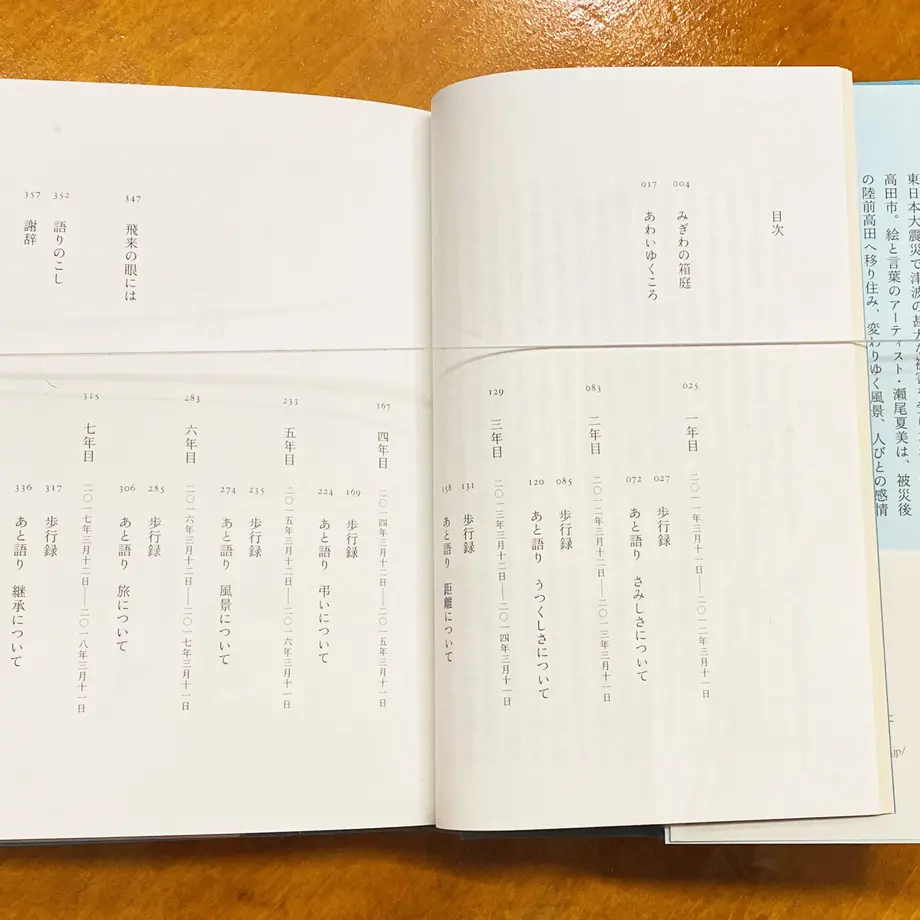 目次
004 みぎわの箱庭
017 あわいゆくころ
025 一年目 二〇一一年三月十一日——二〇一二年三月十一日
027 歩行録
072 あと語り さみしさについて
083 二年目 二〇一二年三月十二日——二〇一三年三月十一日
085 歩行録
120 あと語り うつくしさについて
129 三年目 二〇一三年三月十二日——二〇一四年三月十一日
131 歩行録
158 あと語り 距離について
167 四年目 二〇一四年三月十二日——二〇一五年三月十一日
169 歩行録
224 あと語り 弔いについて
233 五年目 二〇一五年三月十二日——二〇一六年三月十一日
235 歩行録
274 あと語り 風景について
283 六年目 二〇一六年三月十二日——二〇一七年三月十一日
285 歩行録
306 あと語り 旅について
315 七年目 二〇一七年三月十二日——二〇一八年三月十一日
317 歩行録
336 あと語り 継承について
347 飛来の眼には
352 語りのこし
357 謝辞
東日本大震災で津波の甚大な被害を
高田市。絵と言葉のアーティスト・瀬尾夏美は、被災後
の陸前高田へ移り住み、変わりゆく風景、人びとの感情
jp/